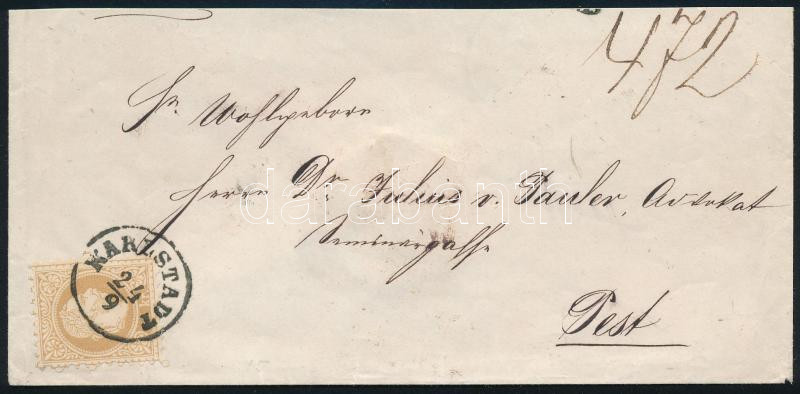 472
Sr. Wohlgeborn
Herrn Dr. Julius v. Pauler, Advokat
Pest
KARLSTADT
24/9
darabanth